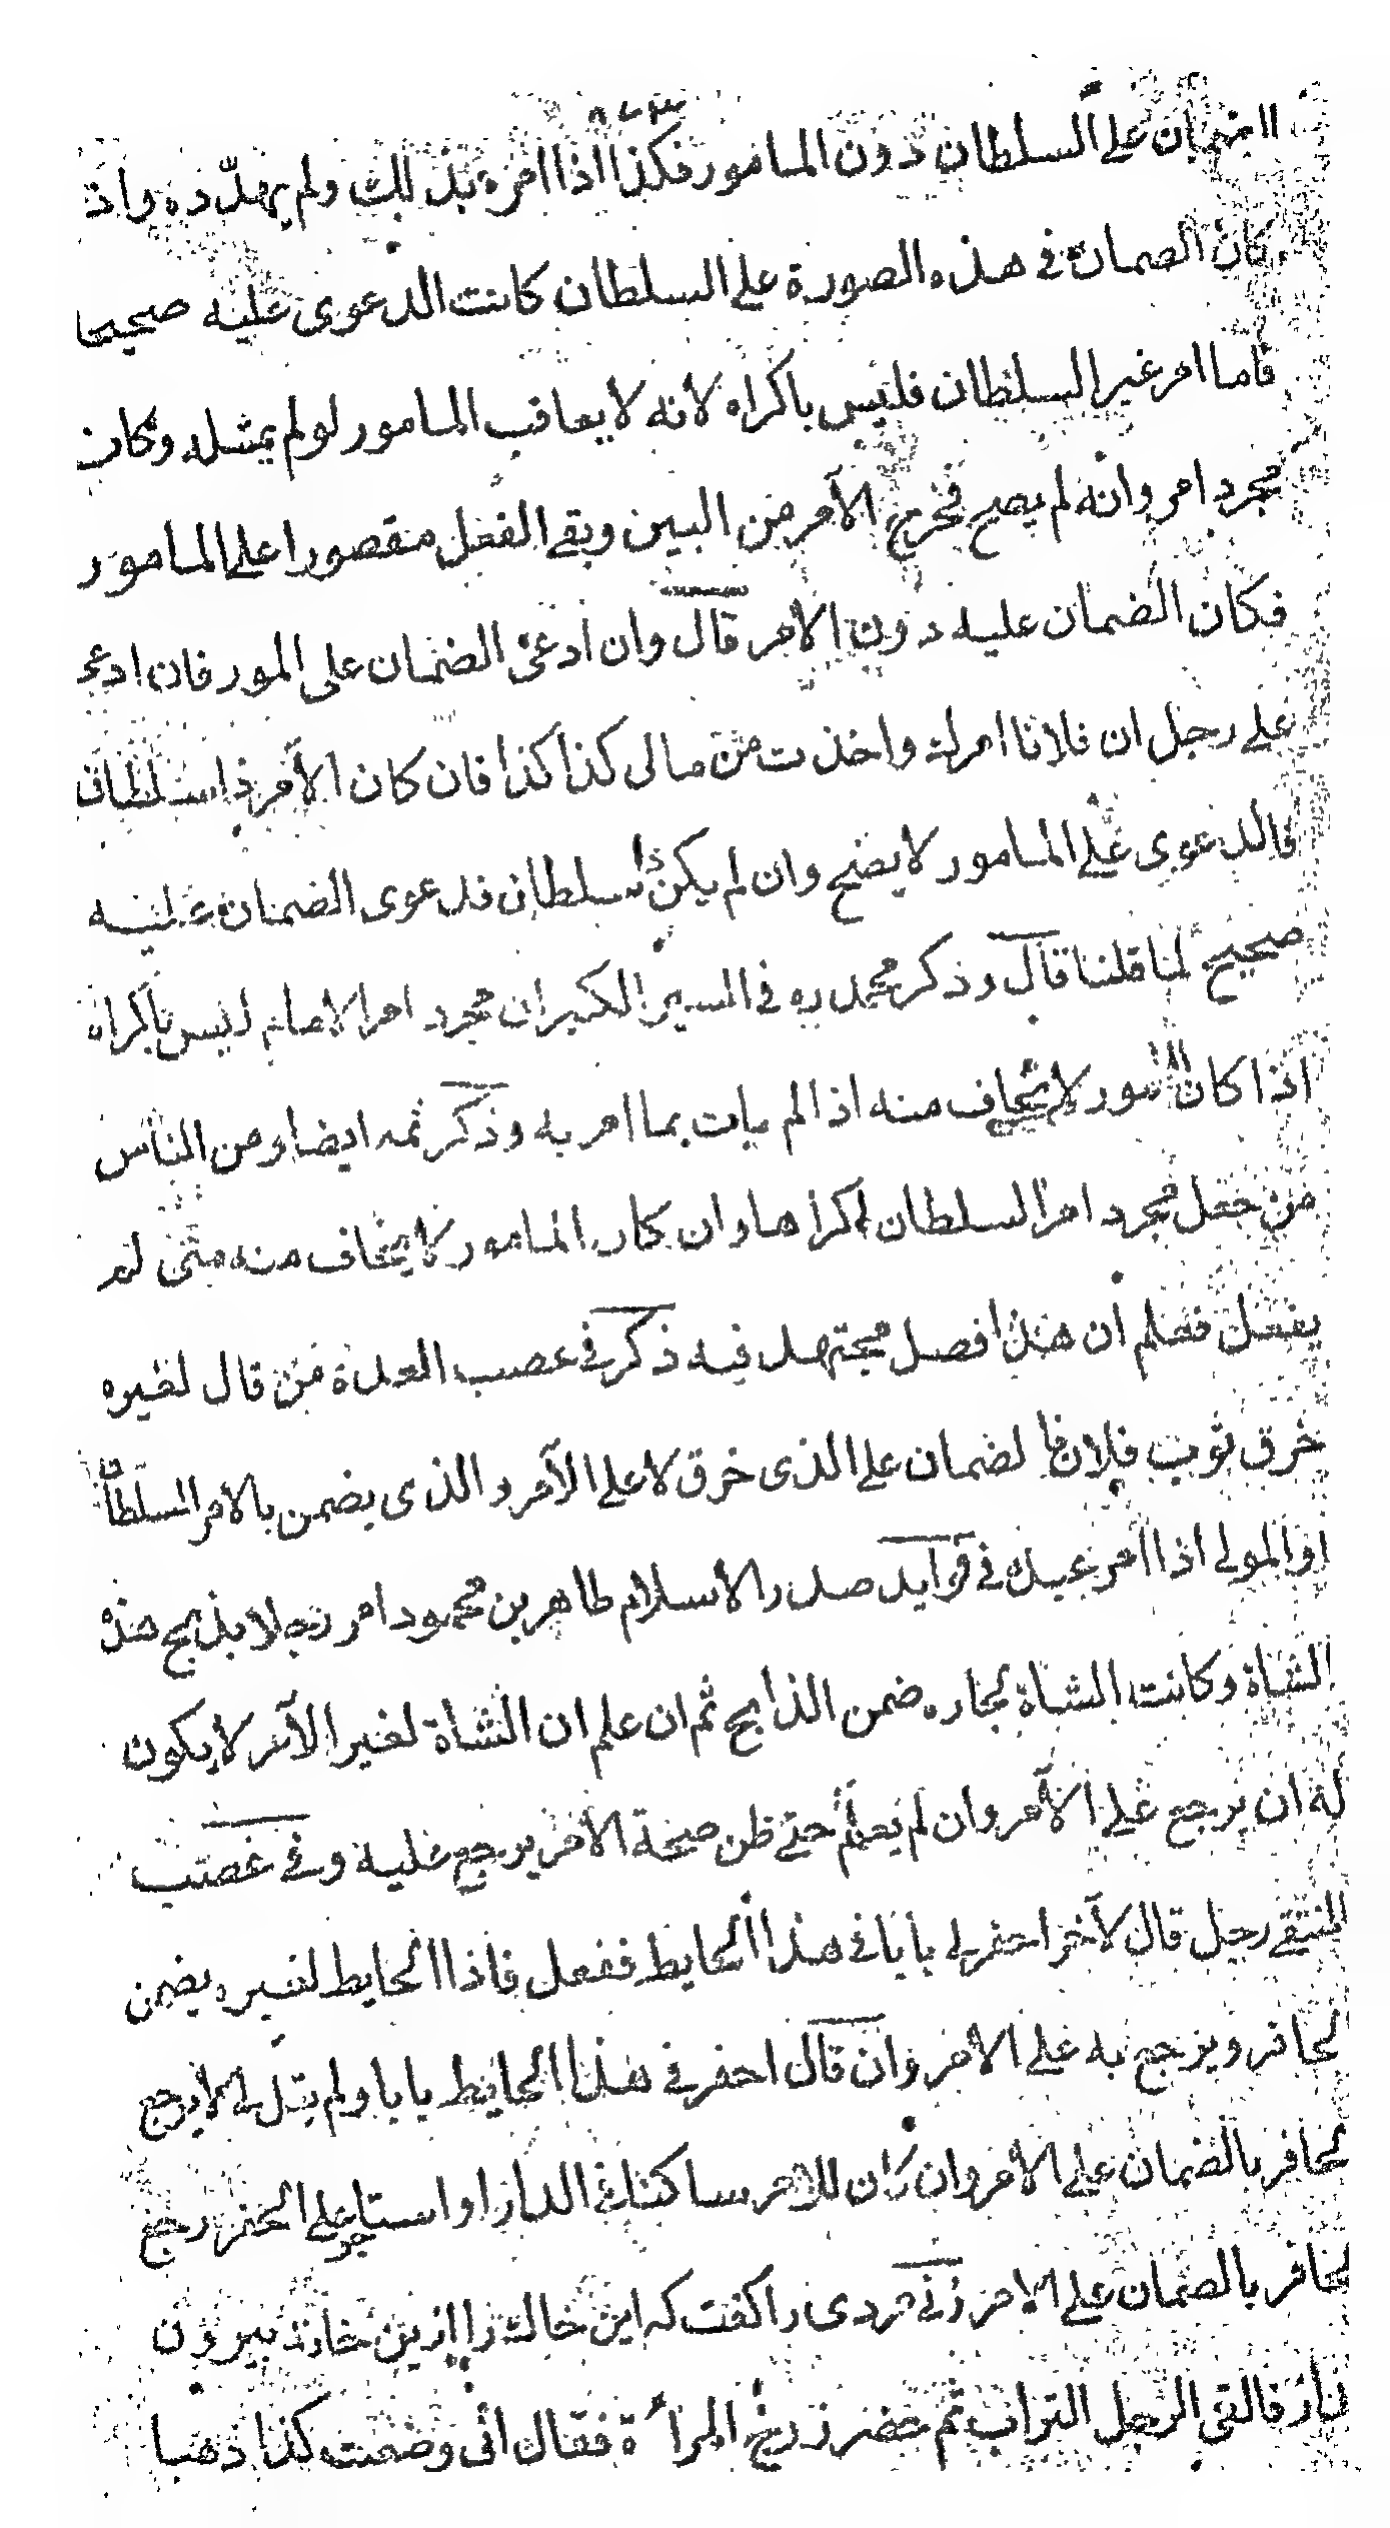 الضمان على السلطان دون المامور فكذا اذا امره بذلك ولم يهدده واذ
كان الضمان في هذه الصورة على السلطان كانت الدعوى عليه صحيحا
فاما امر غير السلطان فليس باكراه لانه لا يعاقب المامور لو لم يمثله وكان
مجرد امر وانه لم يصح فخرج الآمر من البين وبقى الفعل مقصورا على المامور
فكان الضمان عليه دون الامر قال وان ادعى الضمان على المور فان ادعى
على رجل ان فلانا امرك واخذت من مالى كذا كذا فان كان الآمر ذا سلطان
فالدعوى على المامور لا يصح وان لم يكن ذا سلطان فدعوى الضمان عليه
صحيح لما قلنا قال وذكر محمد ره في السير الكبير ان مجرد امر الامام ليس باكراه
اذا كان المامور لا يخاف منه اذا لم يات بما امر به وذكر ثمه ايضا ومن الناس
من جعل مجرد امر السلطان اكراها وان كان المامور لا يخاف منه متى لم
يفعل فعلم ان هذا فصل مجتهد فيه ذكر في عصب العدة من قال لغيره
خرق ثوب فلان فالضمان على الذى خرق لا على الآمر والذى يضمن بالامر السلطان
او المولى اذا امر عبده في فوايد صدر الاسلام طاهر بن محمود امر رجلا بذبح هذه
الشاة وكانت الشاة لجاره ضمن الذابح ثم ان علم ان الشاة لغير الآمر لا يكون
له ان يرجع على الآمر وان لم يعلم حتى ظن صحة الامر يرجع عليه وفي غصب
المنتقى رجل قال لآخر احفر لى بابا في هذا الحايط ففعل فاذا الحايط لغيره يضمن
الحافر ويرجع به على الامر وان قال احفر في هذا الحايط بابا ولم يقل لى لا يرجع
الحافر بالضمان على الامر وان كان للامر ساكنا في الدار او استاجر على الحفر رجع
الحافر بالضمان على الامر زنى مردى را كفت كه اين خاك را ازين خانه بيرون
انداز فالقى الرجل التراب ثم حضر زوج المراة فقال انى وضعت كذا ذهبا